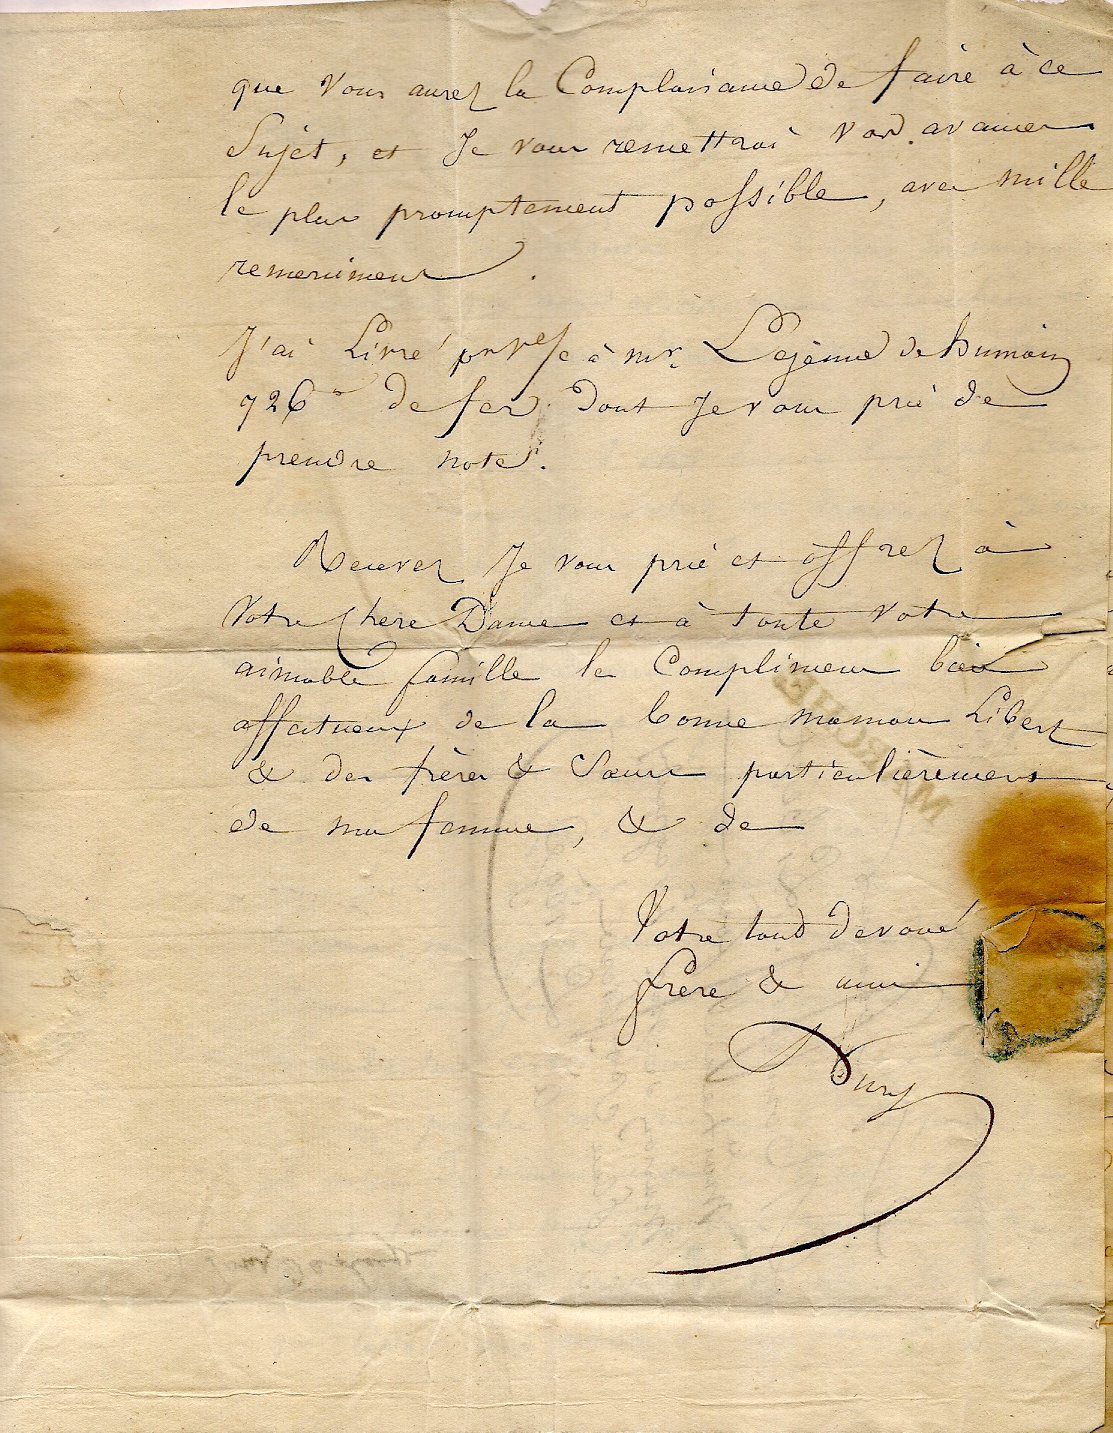 que vous aurez la Complaisance de faire à ce
Sujet, et Je vous remettrai vos avances
le plus promptement possible, avec mille
remerciments.
J'ai Livré à mr. Lejeune de humain
926 de fer dont Je vous prie de
prendre note.
Recevez Je vous prie et offrez à
Votre Chere Dame et à toute votre
aimable famille les Complimens bien
affectueux de la bonne maman Libert
& des frères & Soeurs particulièrement
de ma femme, & de
Votre tout devoué
frère & ami
MARCHE